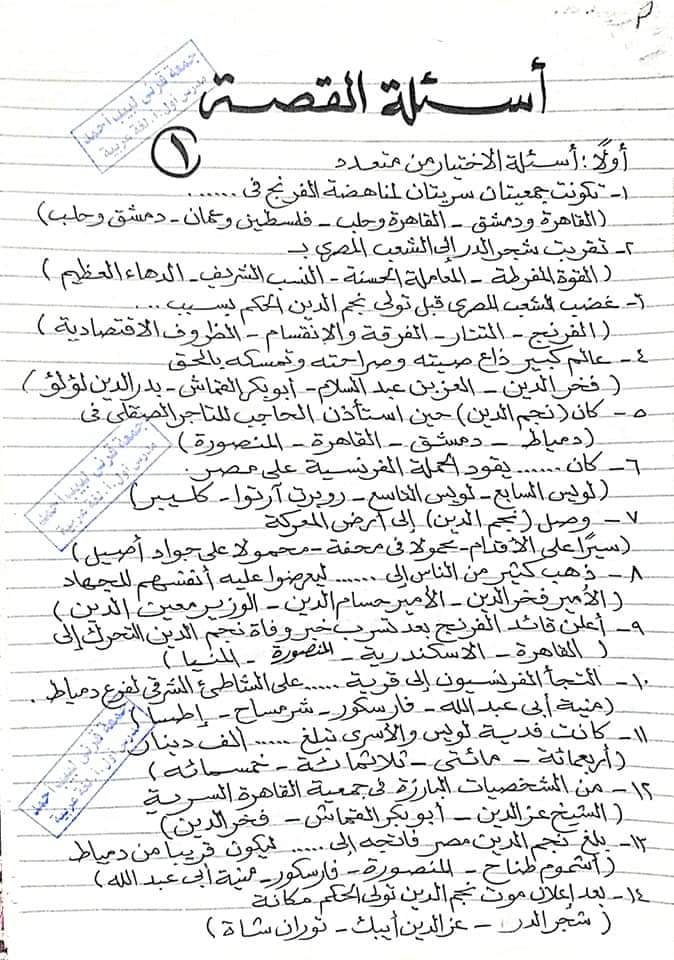 أسئلة القصة
جمعة قرني لبيب أحمد
مدرس أول أ. لغة عربية
١
أولًا: أسئلة الاختيار من متعدد
١- تكونت جمعيتان سريتان لمناهضة الفرنج فى ......
(القاهرة ودمشق - القاهرة وحلب - فلسطين وعمان - دمشق وحلب)
٢- تقربت شجر الدر إلى الشعب المصري بـ
(القوة المفرطة - المعاملة الحسنة - النسب الشريف - الدهاء العظيم)
٣- غضب الشعب المصرى قبل تولى نجم الدين الحكم بسبب ...
(الفرنج - التتار - الفرقة والانقسام - الظروف الاقتصادية)
٤- عالم كبير ذاع صيته وصراحته وتمسكه بالحق
(فخر الدين - العز بن عبد السلام - أبو بكر القماش - بدر الدين لؤلؤ)
٥- كان (نجم الدين) حين استأذن الحاجب للتاجر الصقلى فى
(دمياط - دمشق - القاهرة - المنصورة)
جمعة قرني لبيب أحمد
مدرس أول أ. لغة عربية
٦- كان ...... يقود الحملة الفرنسية على مصر.
(لويس السابع - لويس التاسع - روبرت آرتوا - كليبر)
٧- وصل (نجم الدين) إلى أرض المعركة
(سيرًا على الأقدام - محمولا فى محفة - محمولا على جواد أصيل)
٨- ذهب كثير من الناس إلى ...... ليعرضوا عليه أنفسهم للجهاد
(الأمير فخر الدين - الأمير حسام الدين - الوزير معين الدين)
٩- أعلن قائد الفرنج بعد تسرب خبر وفاة نجم الدين التحرك إلى
(القاهرة - الاسكندرية - المنصورة - المنيا)
١٠- التجأ الفرنسيون إلى قرية ...... على الشاطئ الشرقى لفرع دمياط.
(منية أبى عبد الله - فارسكور - شرمساح - إطسا)
جمعة قرني لبيب أحمد
مدرس أول أ. لغة عربية
١١- كانت فدية لويس والأسرى تبلغ ...... ألف دينار
(أربعمائة - مائتى - ثلاثمائة - خمسمائة)
١٢- من الشخصيات البارزة فى جمعية القاهرة السرية
(الشيخ عز الدين - أبو بكر القماش - فخر الدين)
١٣- بلغ نجم الدين مصر فاتجه إلى ...... ليكون قريبا من دمياط
(أشموم طناح - المنصورة - فارسكور - منية أبى عبد الله)
١٤- بعد إعلان موت نجم الدين تولى الحكم مكانة
(شجر الدر - عز الدين أيبك - توران شاة)